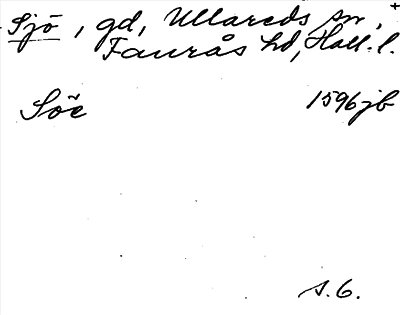 Sjö, gd, Ullareds sn, +
Faurås hd, Hall. l.
Söe 1596 jb
s. 6.